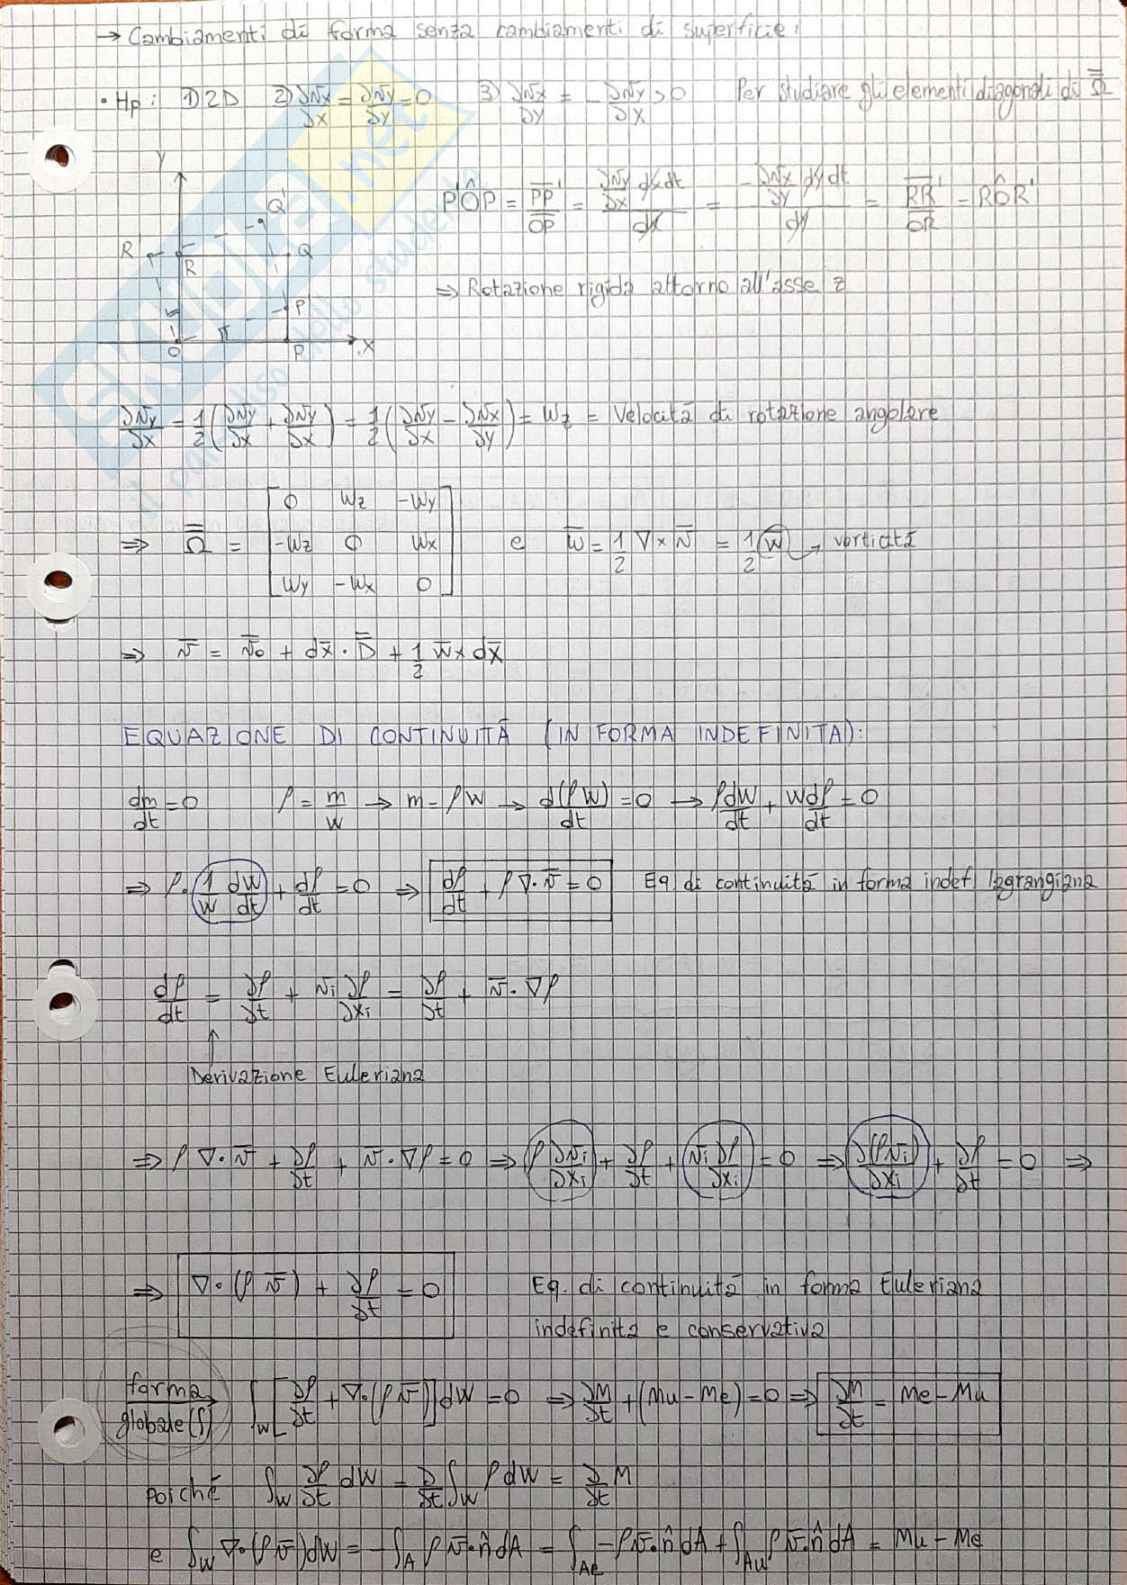 → Cambiamenti di forma senza cambiamenti di superficie:
• Hp: 1) 2D 2) ∂vx/∂x = ∂vy/∂y = 0 3) ∂vx/∂y = -∂vy/∂x > 0 Per studiare gli elementi diagonali di Ω̿
P'ÔP = PP'/OP = (∂vy/∂x dx dt)/dx = (-∂vx/∂y dy dt)/dy = RR'/OR = RÔR'
y
Q'
R' R Q
P'
O P x
⇒ Rotazione rigida attorno all'asse z
∂vy/∂x = 1/2 (∂vy/∂x + ∂vy/∂x) = 1/2 (∂vy/∂x - ∂vx/∂y) = wz = Velocità di rotazione angolare
⇒ Ω̿ = [0 wz -wy; -wz 0 wx; wy -wx 0] e w̄ = 1/2 ∇×v̄ = 1/2 w̄ → vorticità
⇒ v̄ = v̄o + dx̄ · D̿ + 1/2 w̄ x dx̄
EQUAZIONE DI CONTINUITÀ (IN FORMA INDEFINITA):
dm/dt = 0 ρ = m/W → m = ρW → d(ρW)/dt = 0 → ρdW/dt + Wdρ/dt = 0
⇒ ρ·(1/W dW/dt) + dρ/dt = 0 ⇒ dρ/dt + ρ∇·v̄ = 0 Eq di continuità in forma indef. lagrangiana
dρ/dt = ∂ρ/∂t + vi ∂ρ/∂xi = ∂ρ/∂t + v̄·∇ρ
↑
Derivazione Euleriana
⇒ ρ∇·v̄ + ∂ρ/∂t + v̄·∇ρ = 0 ⇒ ρ ∂vi/∂xi + ∂ρ/∂t + vi ∂ρ/∂xi = 0 ⇒ ∂(ρvi)/∂xi + ∂ρ/∂t = 0 ⇒
⇒ ∇·(ρv̄) + ∂ρ/∂t = 0 Eq. di continuità in forma Euleriana
indefinita e conservativa
forma globale (∫) ∫W [∂ρ/∂t + ∇·(ρv̄)] dW = 0 ⇒ ∂M/∂t + (Mu - Me) = 0 ⇒ ∂M/∂t = Me - Mu
poiché ∫W ∂ρ/∂t dW = ∂/∂t ∫W ρdW = ∂/∂t M
e ∫W ∇·(ρv̄)dW = -∫A ρv̄·n̂dA = ∫Ae -ρv̄·n̂dA + ∫Au ρv̄·n̂dA = Mu - Me
SKUOLA.net
il paradiso dello studente